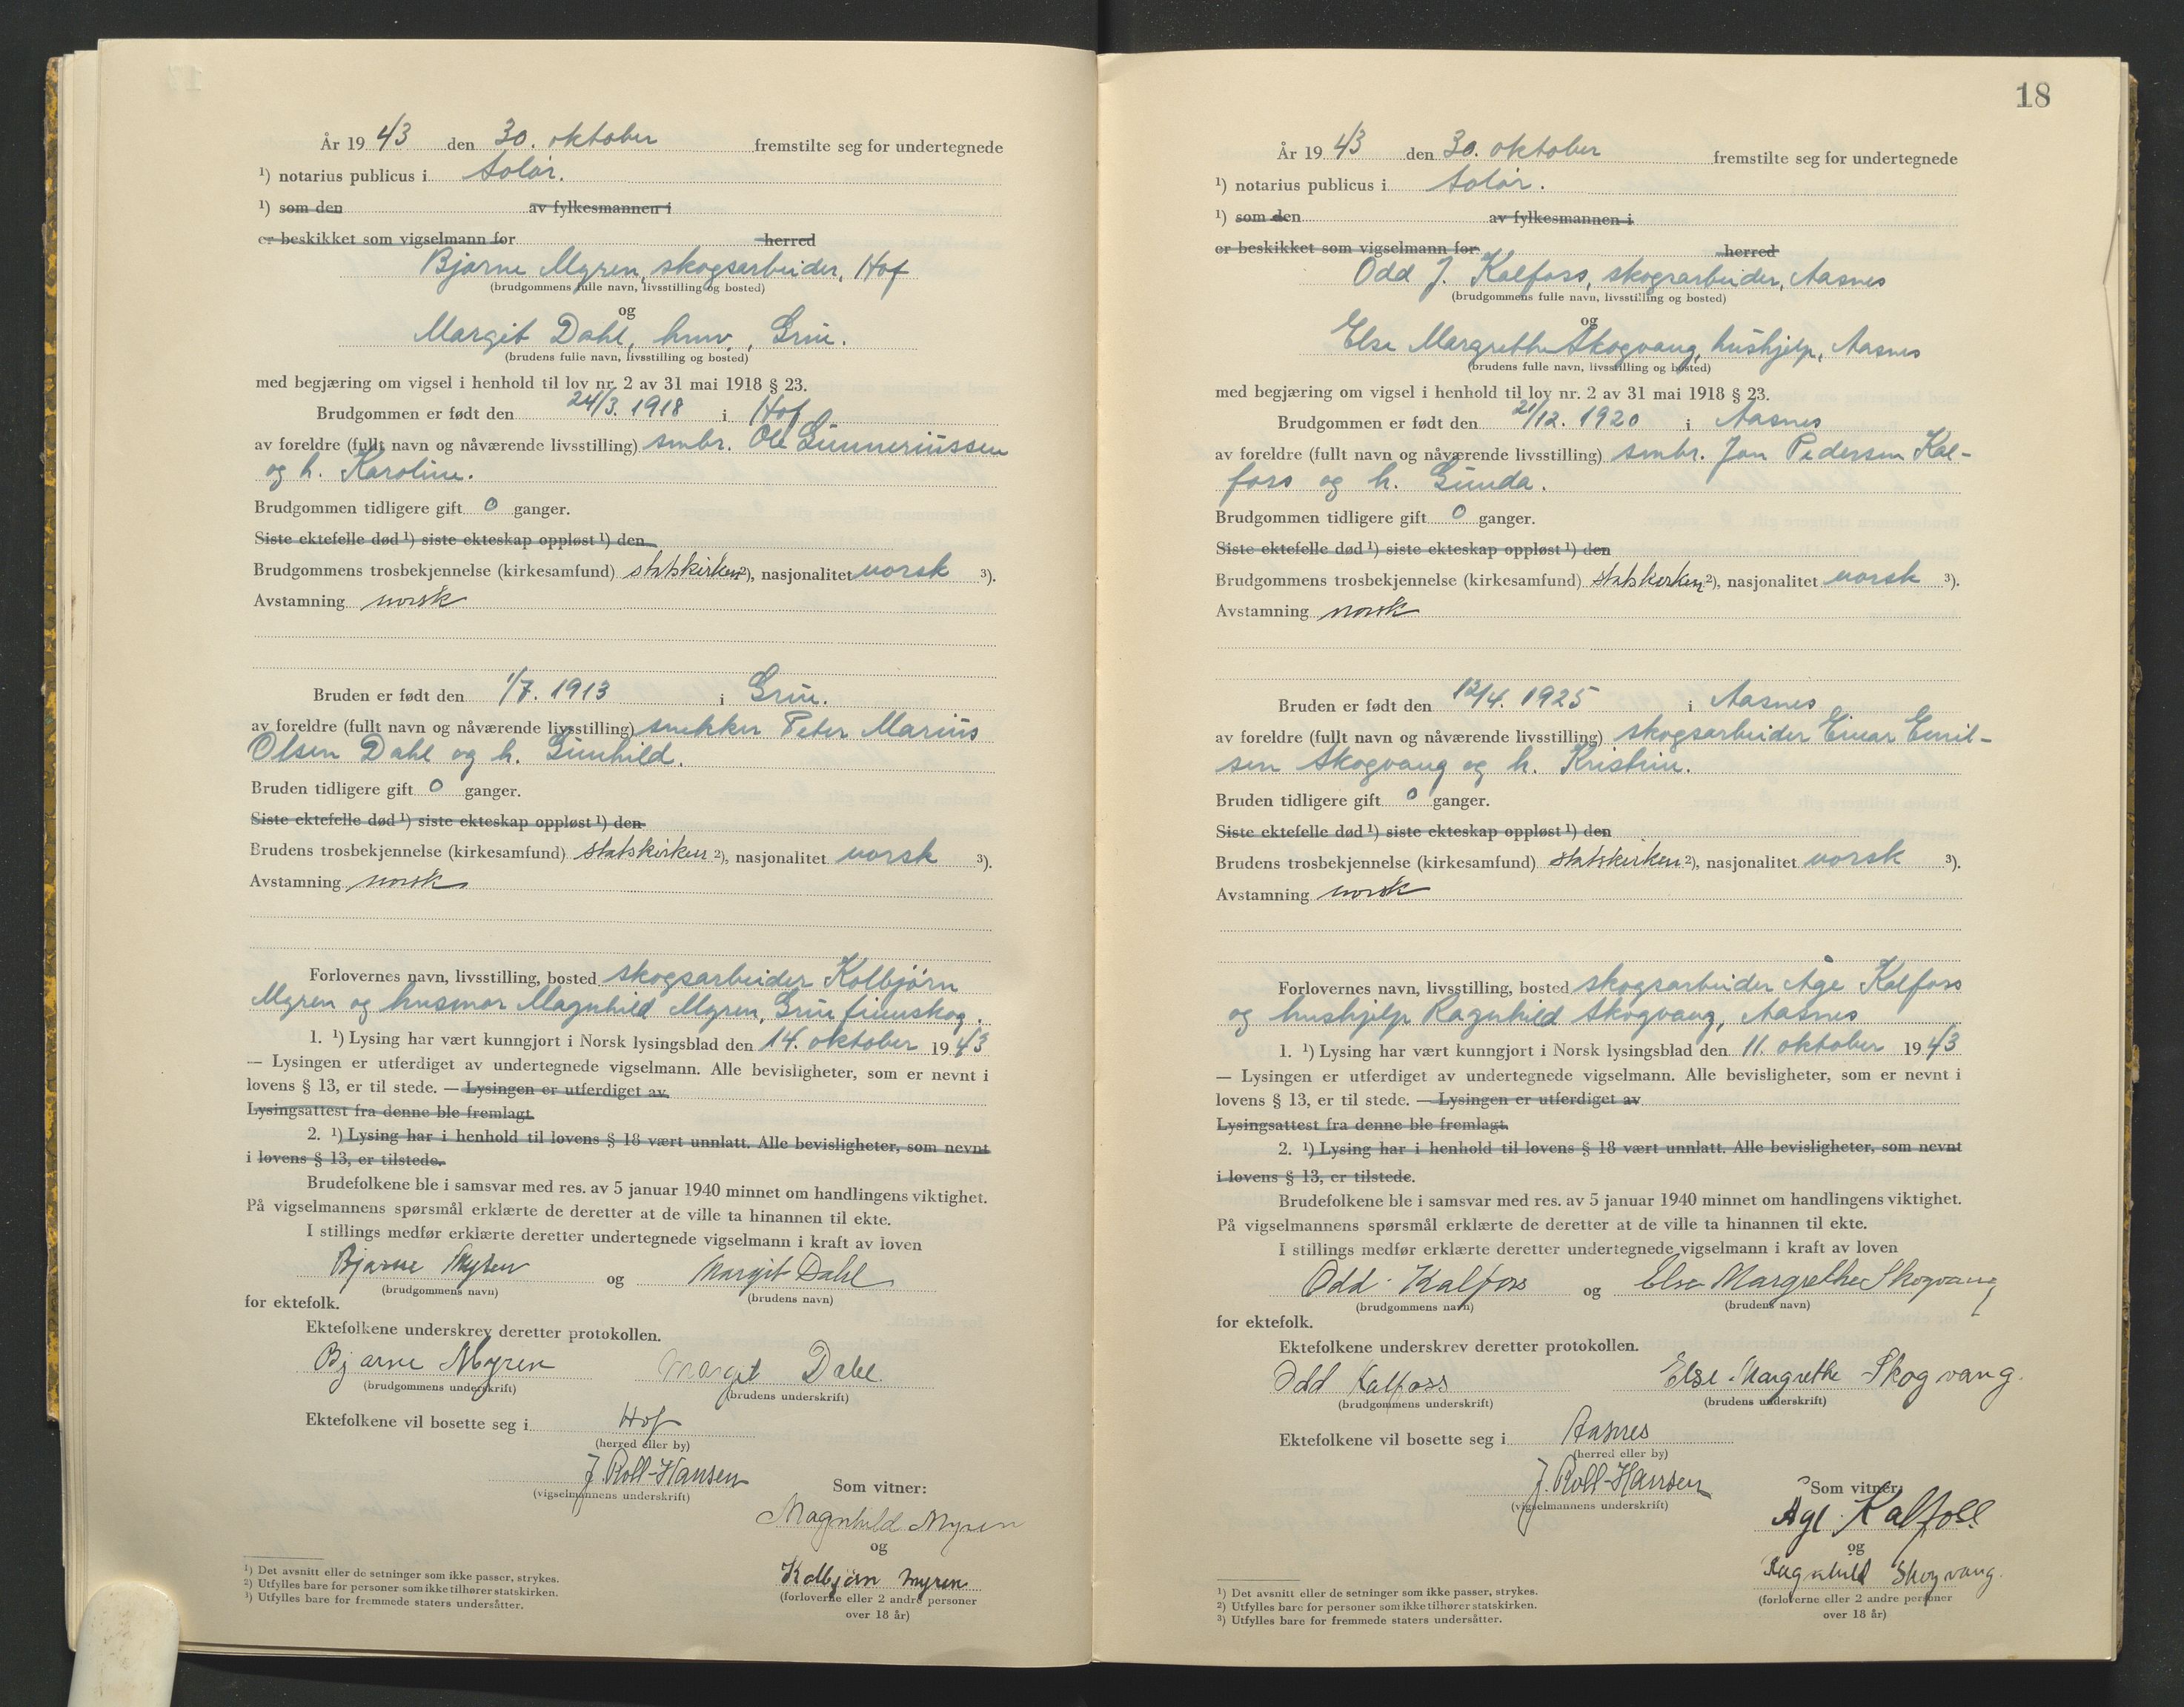 År 19 43 den 30. oktober fremstilte seg for undertegnede
¹) notarius publicus i Solør.
¹) som den av fylkesmannen i
er beskikket som vigselmann for herred
Bjarne Myren, skogsarbeider, Hof
(brudgommens fulle navn, livsstilling og bosted)
og
Margit Dahl, husv., Grue.
(brudens fulle navn, livsstilling og bosted)
med begjæring om vigsel i henhold til lov nr. 2 av 31 mai 1918 § 23.
Brudgommen er født den 24/3. 1918 i Hof
av foreldre (fullt navn og nåværende livsstilling) smbr. Ole Gunneriussen
og h. Karoline.
Brudgommen tidligere gift 0 ganger.
Siste ektefelle død ¹) siste ekteskap oppløst ¹) den
Brudgommens trosbekjennelse (kirkesamfund) statskirken ²), nasjonalitet norsk ³).
Avstamning norsk
Bruden er født den 1/7. 1913 i Grue.
av foreldre (fullt navn og nåværende livsstilling) snekker Peter Marius
Olsen Dahl og h. Gunhild.
Bruden tidligere gift 0 ganger.
Siste ektefelle død ¹) siste ekteskap oppløst ¹) den
Brudens trosbekjennelse (kirkesamfund) statskirken ²), nasjonalitet norsk ³).
Avstamning norsk
Forlovernes navn, livsstilling, bosted skogsarbeider Kolbjørn
Myren og husmor Magnhild Myren, Grue finnskog.
1. ¹) Lysing har vært kunngjort i Norsk lysingsblad den 14. oktober 19 43
— Lysingen er utferdiget av undertegnede vigselmann. Alle bevisligheter, som er nevnt i
lovens § 13, er til stede. — Lysingen er utferdiget av
Lysingsattest fra denne ble fremlagt.
2. ¹) Lysing har i henhold til lovens § 18 vært unnlatt. Alle bevisligheter, som nevnt
i lovens § 13, er tilstede.
Brudefolkene ble i samsvar med res. av 5 januar 1940 minnet om handlingens viktighet.
På vigselmannens spørsmål erklærte de deretter at de ville ta hinannen til ekte.
I stillings medfør erklærte deretter undertegnede vigselmann i kraft av loven
Bjarne Myren og Margit Dahl
(brudgommens navn) (brudens navn)
for ektefolk.
Ektefolkene underskrev deretter protokollen.
Bjarne Myren Margit Dahl.
(brudgommens underskrift) (brudens underskrift)
Ektefolkene vil bosette seg i Hof
(herred eller by)
J. Roll-Hansen
(vigselmannens underskrift)
Som vitner:
Magnhild Myren
og
Kolbjørn Myren
(forloverne eller 2 andre personer
over 18 år)
¹) Det avsnitt eller de setninger som ikke passer, strykes.
²) Utfylles bare for personer som ikke tilhører statskirken.
³) Utfylles bare for fremmede staters undersåtter.
18
År 19 43 den 30. oktober fremstilte seg for undertegnede
¹) notarius publicus i Solør.
¹) som den av fylkesmannen i
er beskikket som vigselmann for herred
Odd J. Kalfoss, skogsarbeider, Aasnes
(brudgommens fulle navn, livsstilling og bosted)
og
Else Margrethe Skogvang, hushjelp, Aasnes
(brudens fulle navn, livsstilling og bosted)
med begjæring om vigsel i henhold til lov nr. 2 av 31 mai 1918 § 23.
Brudgommen er født den 21/12. 1920 i Aasnes
av foreldre (fullt navn og nåværende livsstilling) smbr. Jon Pedersen Kal-
foss og h. Gunda.
Brudgommen tidligere gift 0 ganger.
Siste ektefelle død ¹) siste ekteskap oppløst ¹) den
Brudgommens trosbekjennelse (kirkesamfund) statskirken ²), nasjonalitet norsk ³).
Avstamning norsk
Bruden er født den 12/4. 1925 i Aasnes
av foreldre (fullt navn og nåværende livsstilling) skogsarbeider Einar Emil-
sen Skogvang og h. Kristine.
Bruden tidligere gift 0 ganger.
Siste ektefelle død ¹) siste ekteskap oppløst ¹) den
Brudens trosbekjennelse (kirkesamfund) statskirken ²), nasjonalitet norsk ³).
Avstamning norsk
Forlovernes navn, livsstilling, bosted skogsarbeider Åge Kalfoss
og hushjelp Ragnhild Skogvang, Aasnes
1. ¹) Lysing har vært kunngjort i Norsk lysingsblad den 11. oktober 19 43
— Lysingen er utferdiget av undertegnede vigselmann. Alle bevisligheter, som er nevnt i
lovens § 13, er til stede. — Lysingen er utferdiget av
Lysingsattest fra denne ble fremlagt.
2. ¹) Lysing har i henhold til lovens § 18 vært unnlatt. Alle bevisligheter, som nevnt
i lovens § 13, er tilstede.
Brudefolkene ble i samsvar med res. av 5 januar 1940 minnet om handlingens viktighet.
På vigselmannens spørsmål erklærte de deretter at de ville ta hinannen til ekte.
I stillings medfør erklærte deretter undertegnede vigselmann i kraft av loven
Odd Kalfoss og Else Margrethe Skogvang
(brudgommens navn) (brudens navn)
for ektefolk.
Ektefolkene underskrev deretter protokollen.
Odd Kalfoss Else Margrethe Skogvang.
(brudgommens underskrift) (brudens underskrift)
Ektefolkene vil bosette seg i Aasnes
(herred eller by)
J. Roll-Hansen
(vigselmannens underskrift)
Som vitner:
Åge Kalfoss
og
Ragnhild Skogvang.
(forloverne eller 2 andre personer
over 18 år)
¹) Det avsnitt eller de setninger som ikke passer, strykes.
²) Utfylles bare for personer som ikke tilhører statskirken.
³) Utfylles bare for fremmede staters undersåtter.